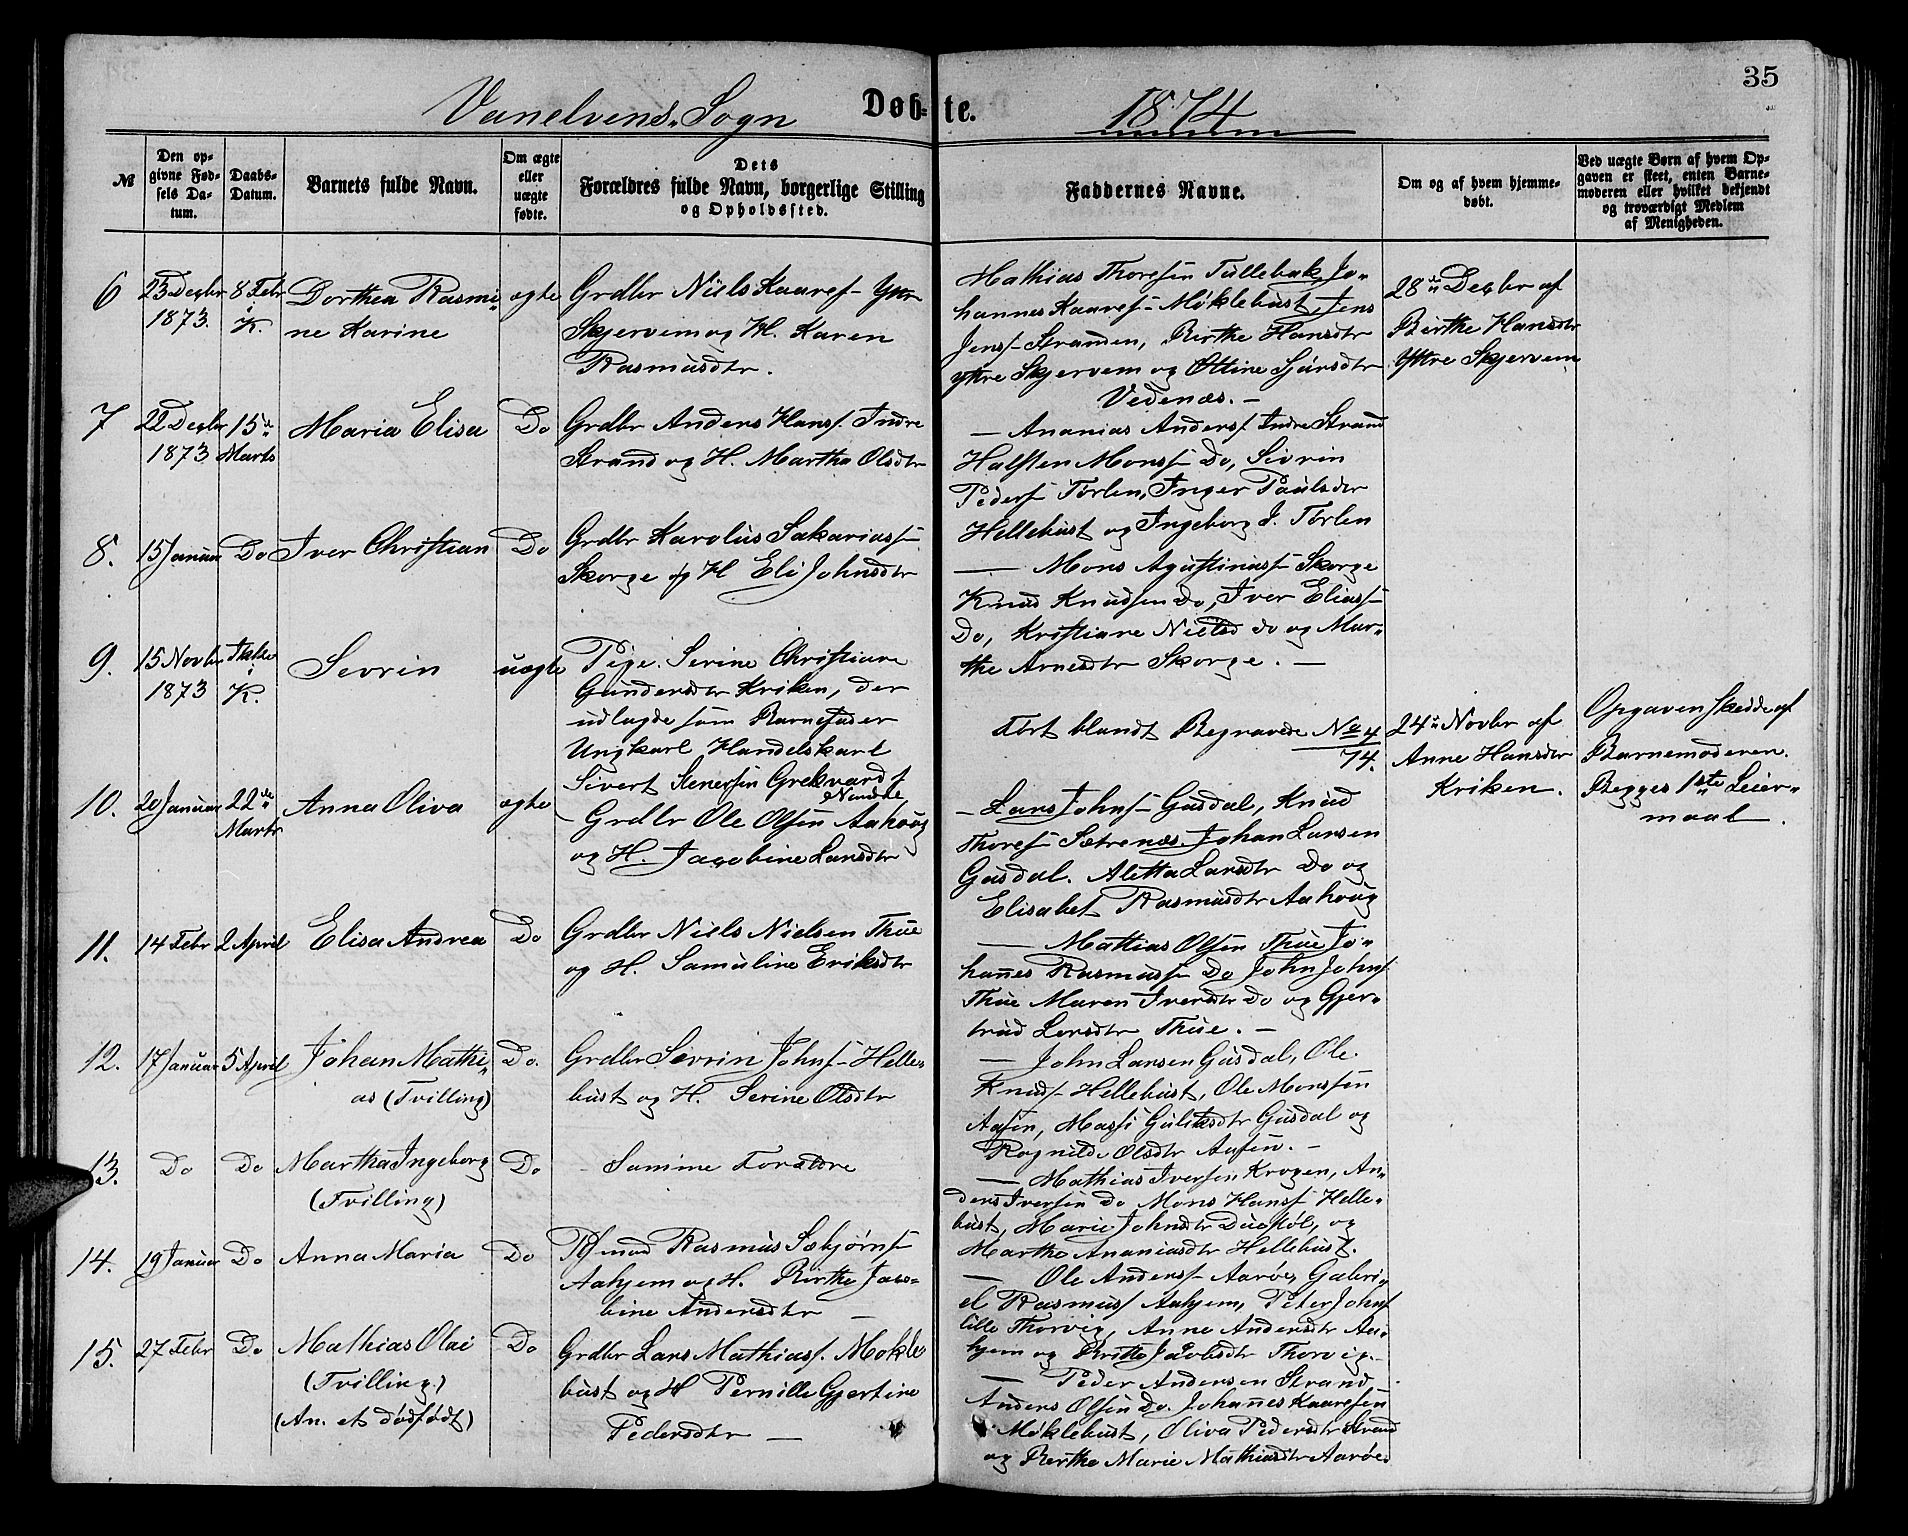 35
Vanelvens Sogn Døb-te. 1874
№
Den op-
givne Fød-
sels Da-
tum.
Daabs-
Datum.
Barnets fulde Navn.
Om ægte
eller
uægte
fødte.
Dets
Forældres fulde Navn, borgerlige Stilling
og Opholdssted.
Faddernes Navne.
Om og af hvem hjemme-
døbt.
Ved uægte Børn af hvem Op-
gaven er skeet, enten Barne-
moderen eller hvilket bekjendt
og troværdigt Medlem
af Menigheden.
6
23 Decbr
1873.
8 Febr
i K.
Dorthea Rasmi-
ne Karine
ægte
Grdbr Niels Kaares. Ytre
Skjervem og H. Karen
Rasmusdtr.
Mathias Thoresen Tullebak, Jo-
hannes Kaares. Møklebust, Jens
Jens. Stranden, Birthe Hansdtr
ytre Skjervem og Ottine Sjursdtr
Vedenæs. -
28de Decbr af
Birthe Hansdtr
Yttre Skjervem
7
22 Decbr
1873
15de
Marts
Maria Elisa
Do
Grdbr Anders Hans. Indre
Strand og H. Martha Olsdtr
- Ananias Anders. Indre Strand
Halsten Mons. Do, Sivrin
Peders. Tørlen, Inger Paulsdtr
Hellebust og Ingeborg J. Tørlen
8.
15 Januar
Do
Iver Christian
Do
Grdbr Karolus Sakarias.
Skorge og H Eli Johnsdtr
- Mons Agustinus. Skorge
Knud Knudsen Do, Iver Elias.
Do, Kristiane Nielsd do og Mar-
the Arnesdtr Skorge. -
9.
15 Novbr
1873
Ikke
i K.
Sevrin
uægte
Pige Serine Christiane
Gundersdtr Kriken, der
udlagde som Barnefader
Ungkarl Handelskarl
Sivert Stenersen Grekvard
Ført blandt Begravede No 4
74.
24de Novbr af
Anne Hansdtr
Kriken.
Opgaven skedde af
Barnemoderen.
Begges 1ste Leier-
maal.
10.
20 Januar
22de
Marts
Anna Oliva
ægte
Grdbr Ole Olsen Aahoug
og H. Jacobine Larsdtr
- Lars Johns. Gusdal, Knud
Thores. Sætrenæs, Johan Larsen
Gusdal. Aletta Larsdtr Do og
Elisabet Rasmusdtr Aahoug
11.
14 Febr
2 April
Elisa Andrea
Do
Grdbr Niels Nielsen Thue
og H. Samuline Eriksdtr
- Mathias Olsen Thue, Jo-
hannes Rasmuss. Do, John Johns.
Thue Maren Iversdtr Do og Gjer-
trud Larsdtr Thue. -
12.
17 Januar
5 April
Johan Mathi-
as (Tvilling)
Do.
Grdbr Sevrin Johns. Helle-
bust og H. Serine Olsdtr
- John Larsen Gusdal, Ole
Knuds. Hellebust, Ole Monssen
Aasen, Massi Guliksdtr Gusdal og
Ragnilde Olsdtr Aasen. -
13.
Do
Do
Martha Ingeborg
(Tvilling)
Do
Samme Forældre
- Mathias Iversen Krogen, An-
ders Iversen Do Mons Hans. Helle-
bust, Marie Johnsdtr og
Marthe Ananiasdtr Hellebust.
14.
19 Januar
Do
Anna Maria
Do
Rasmus Sæbjørns.
Aahjem og H. Birthe Jaco-
bine Andersdtr -
- Ole Anders. Aarøe, Gabri-
el Rasmus. Aahjem, Peter Johns.
lille Thorvig, Anne Andersdtr Aa-
hjem og Jacobsdtr Thorvig.
15.
27 Febr
Do
Mathias Olai
(Tvilling)
(An. et dødfødt)
Do
Grdbr Lars Mathias. Møkle
bust og H Pernille Gjertine
Pedersdtr -
- Peder Andersen Strand
Anders Olsen Do. Johannes Kaaresen
Møklebust, Oliva Pedersdtr Strand
og Berthe Marie Mathiasdtr Aarøe